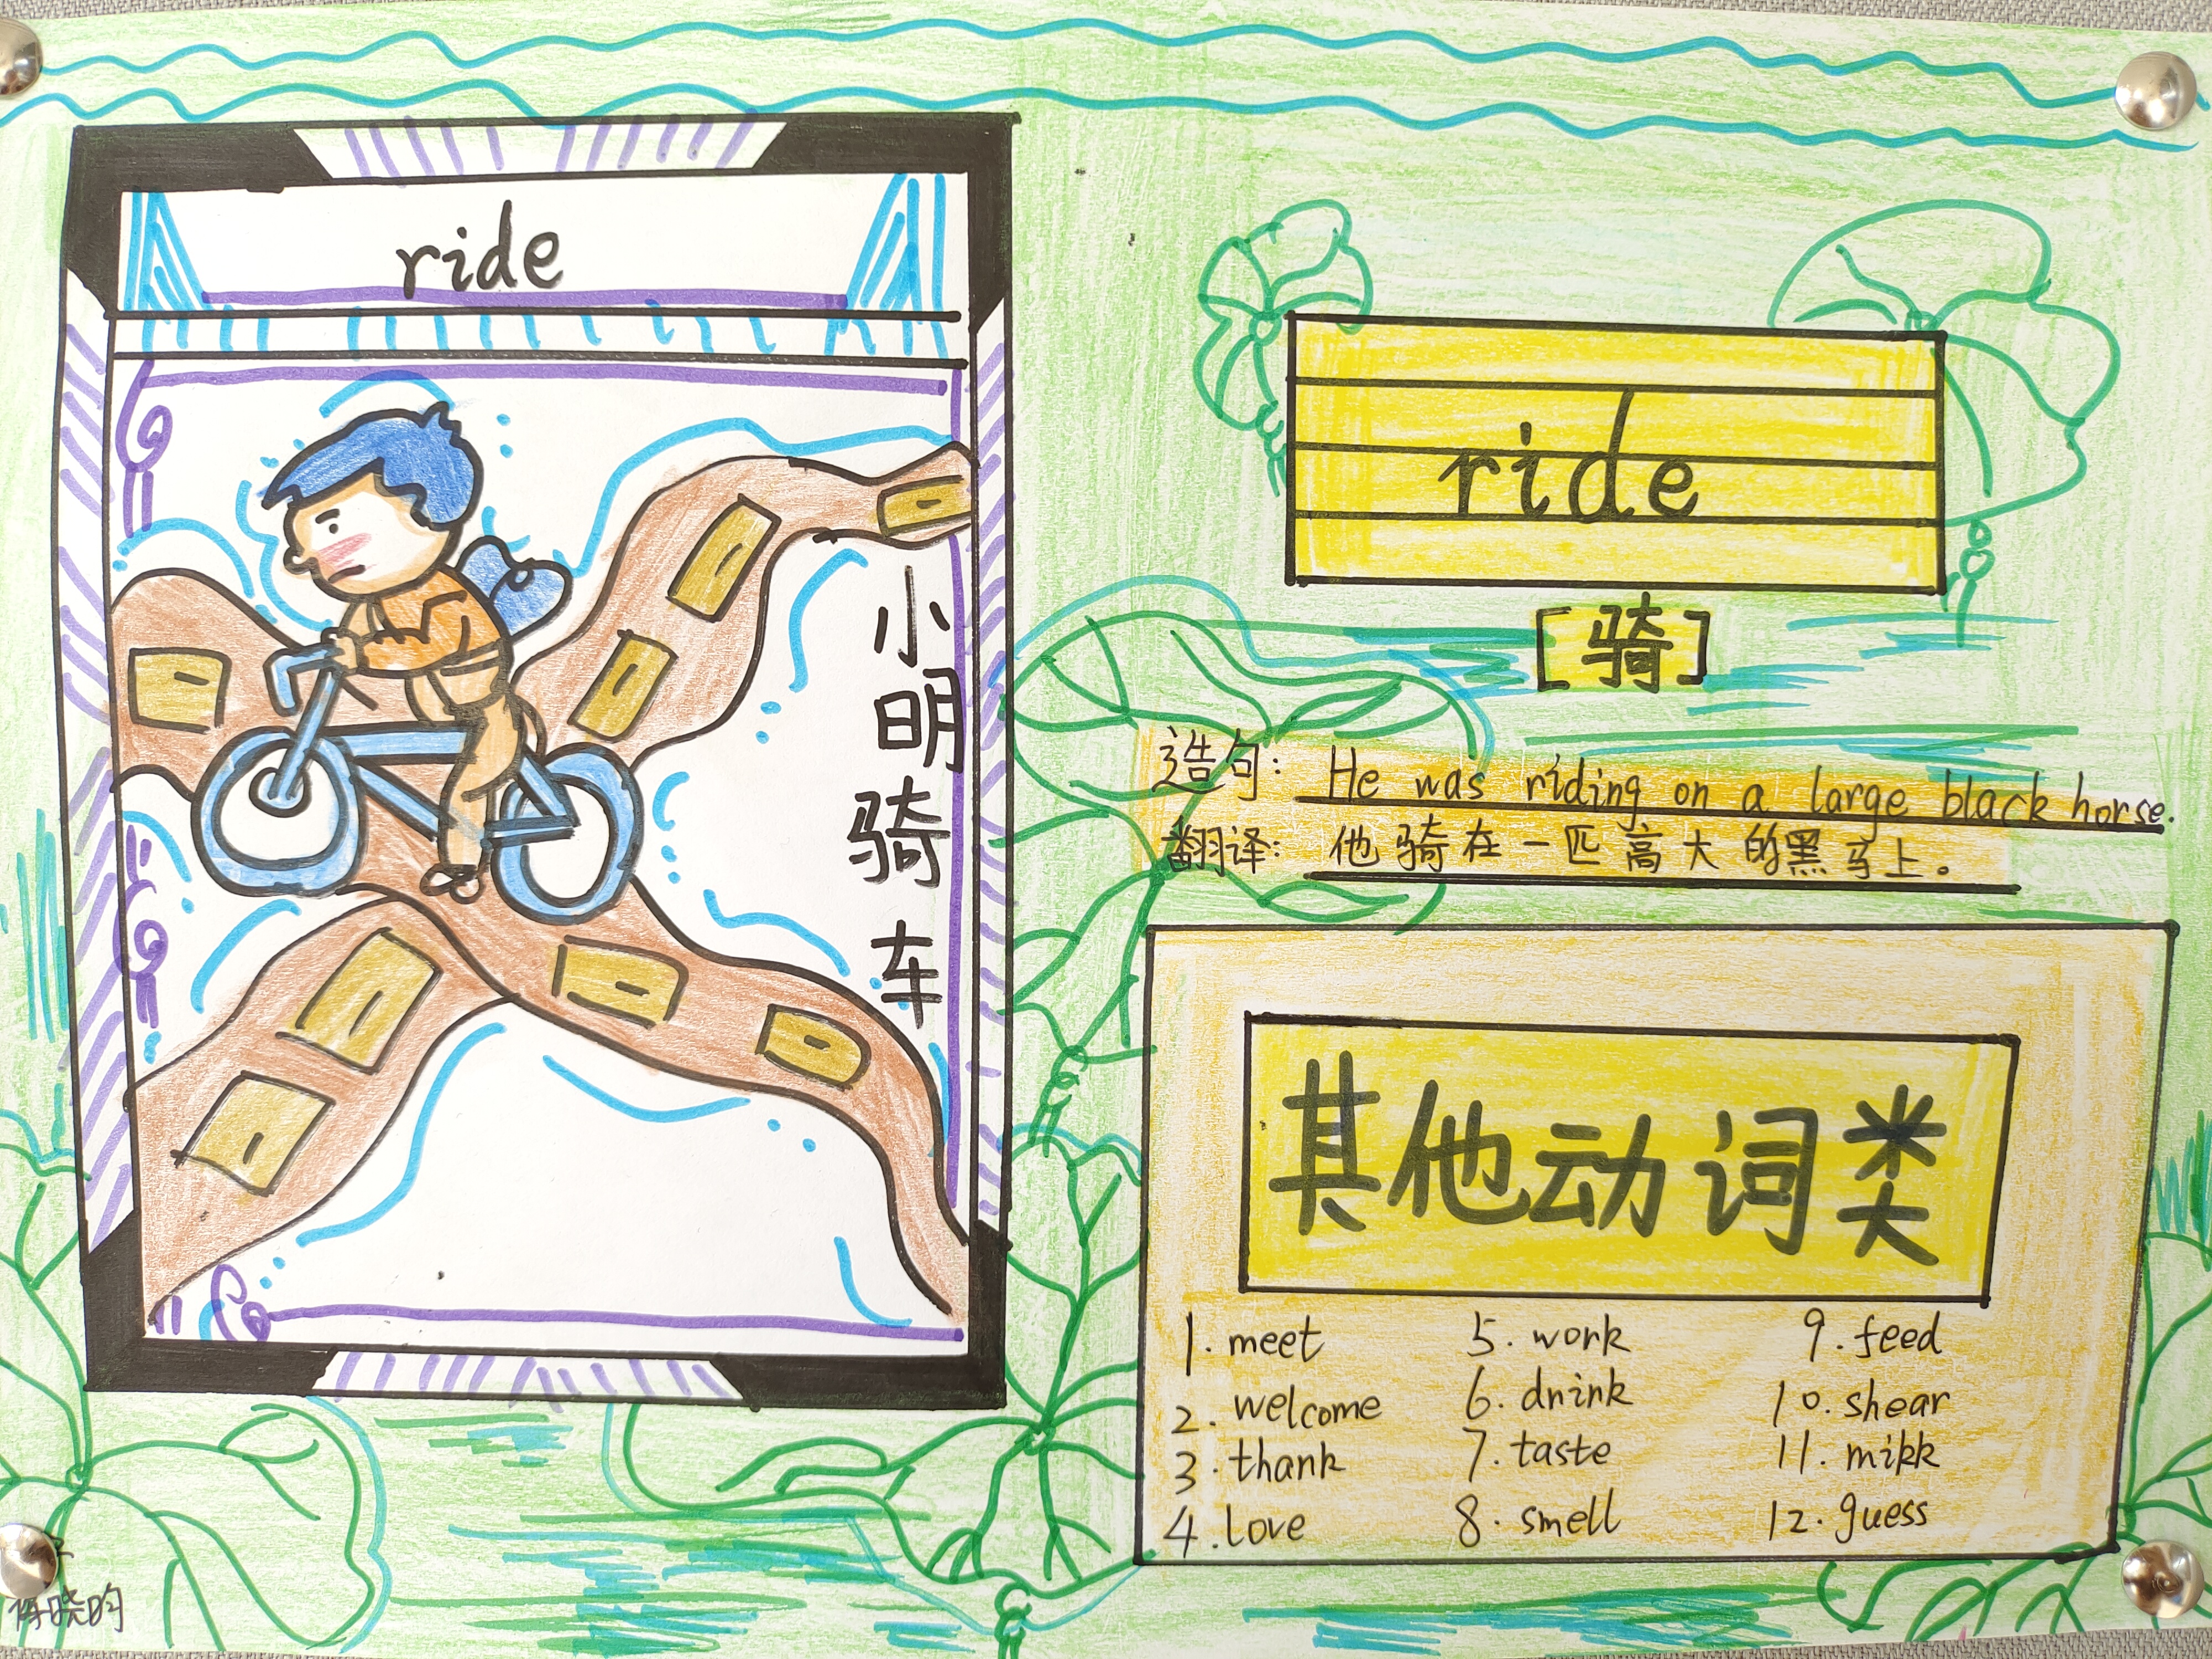 ride
小明骑车
ride
[骑]
造句: He was riding on a large black horse.
翻译: 他骑在一匹高大的黑马上。
其他动词类
1. meet
2. welcome
3. thank
4. love
5. work
6. drink
7. taste
8. smell
9. feed
10. shear
11. mikk
12. guess